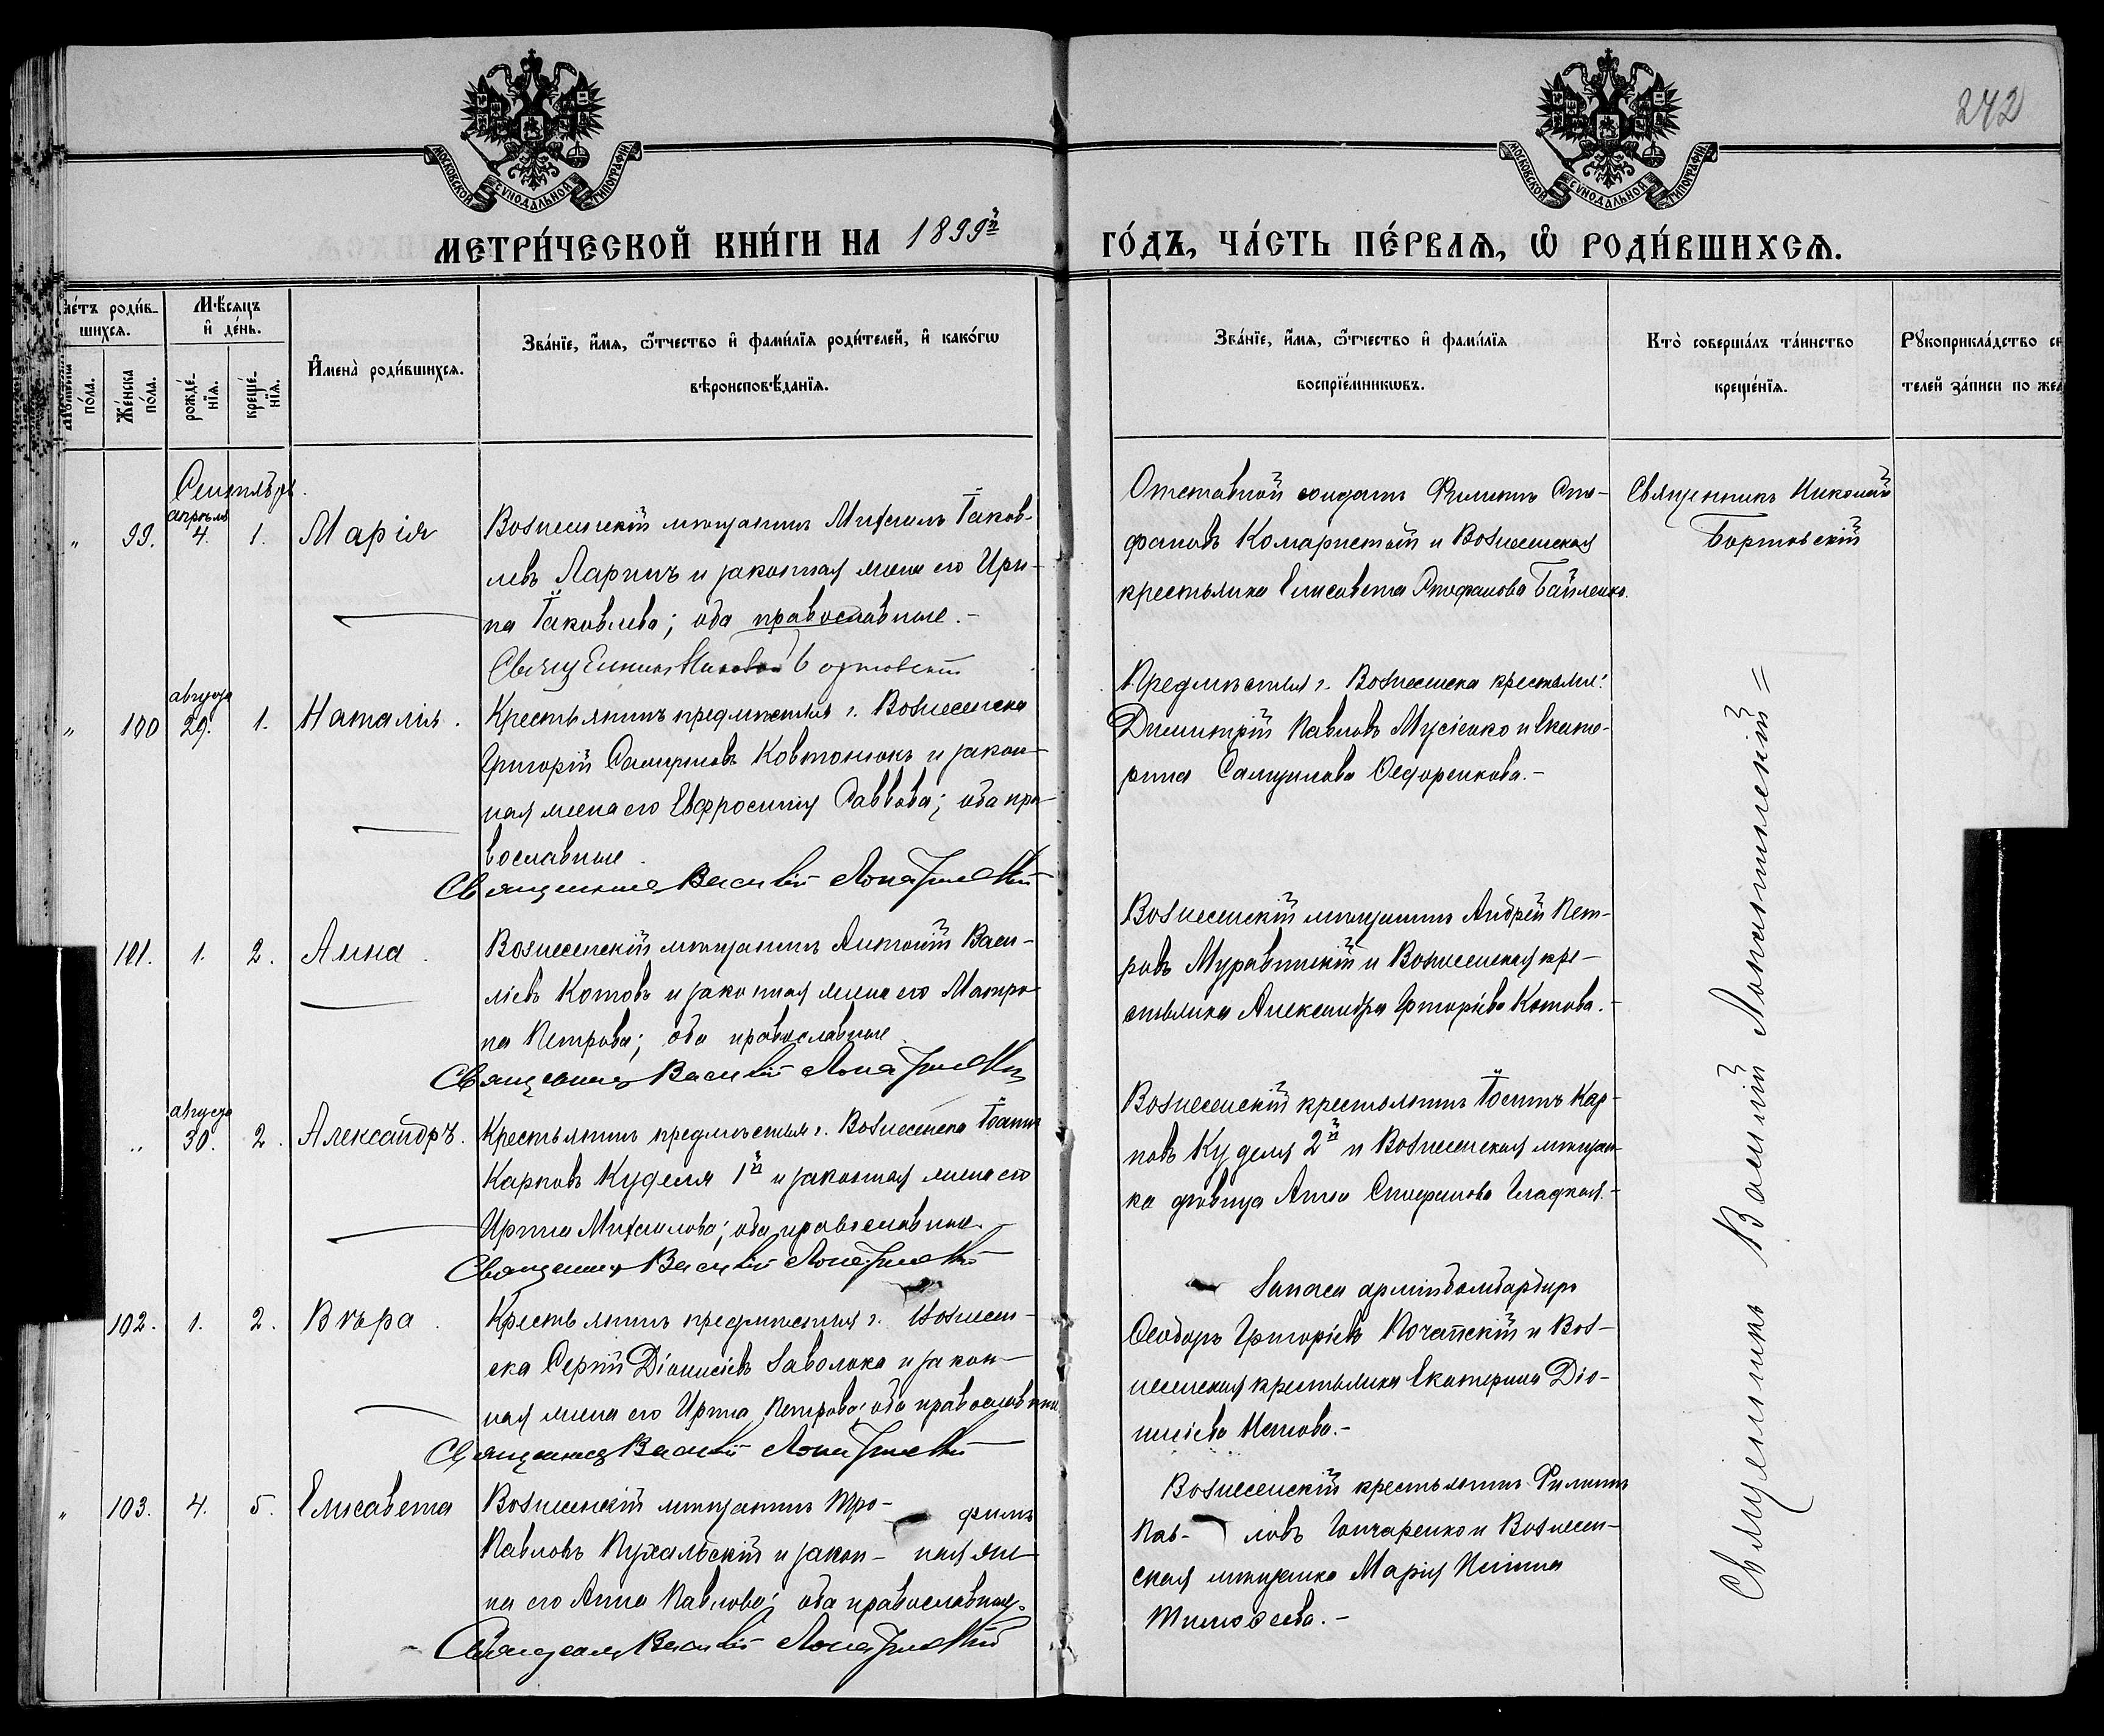 242
МОСКОВСКОЙ СѴНОДАЛЬНОЙ ТИПОГРАФІИ
МОСКОВСКОЙ СѴНОДАЛЬНОЙ ТИПОГРАФІИ
МЕТРИ́ЧЕСКОЙ КНИ́ГИ НА 1899й
ГО́ДЪ, ЧА́СТЬ ПЕ́РВАѦ, Ѡ҆ РОДИ́ВШИХСѦ.
роди́в-
шихсѧ.
по́ла.
Же́нска
по́ла.
Мѣ́сѧцъ
и҆ де́нь.
рожде́-
нїѧ.
креще́-
нїѧ.
И҆мена̀ роди́вшихсѧ.
Зва́нїе, и҆́мѧ, ѻ҆́тчество и҆ фами́лїѧ роди́телей, и҆ како́гѡ
вѣроисповѣ́данїѧ.
Зва́нїе, и҆́мѧ, ѻ҆́тчество и҆ фами́лїѧ
воспрїе́мникѡвъ.
Кто̀ соверша́лъ та́инство
креще́нїѧ.
Рꙋкоприкла́дство
телей за́писи по
Сентябрь.
апрѣля
" 99. 4. 1. Марія
Вознесенскій мѣщанинъ Михаилъ Іаков-
левъ Ларинъ и законная жена его Ири-
на Іаковлева; оба православные.-
Священникъ Николай Бортовскій
Отставной солдатъ Филиппъ Сте-
фановъ Комаристый и Вознесенская
крестьянка Елисавета Стефанова Байленко.
Священникъ Николай
Бортовскій
августа
" 100 29. 1. Наталія.
Крестьянинъ предмѣстья г. Вознесенска
Григорій Самуиловъ Ковтонюкъ и закон-
ная жена его Евфросинія Саввова; оба пра-
вославные.
Священникъ Василій Лопатинскій
Предмѣстья г. Вознесенска крестьяне:
Димитрій Павловъ Мусіенко и Екате-
рина Самуилова Ѳедоренкова.-
101. 1. 2. Анна.
Вознесенскій мѣщанинъ Антоній Васи-
ліевъ Котовъ и законная жена его Матро-
на Петрова; оба православные.
Священникъ Василій Лопатинскій
Вознесенскій мѣщанинъ Андрей Пет-
ровъ Муравинскій и Вознесенская кре-
стьянка Александра Григорьева Котова.-
августа
" 30. 2. Александръ.
Крестьянинъ предмѣстья г. Вознесенска Іоаннъ
Карповъ Куделя 1й и законная жена его
Ирина Михаилова; оба православные.
Священникъ Василій Лопатинскій
Вознесенскій крестьянинъ Іосифъ Кар-
повъ Куделя 2й и Вознесенская мѣщан-
ка дѣвица Анна Стефанова Гладкая.-
102. 1. 2. Вѣра.
Крестьянинъ предмѣстья г. Вознесен-
ска Сергій Діонисіевъ Заволока и закон-
ная жена его Ирина Петрова; оба православные
Священникъ Василій Лопатинскій
Запаса арміи бомбардиръ
Ѳеодоръ Григоріевъ Почапскій и Воз-
несенская крестьянка Екатерина Діо-
нисіева
" 103. 4. 5. Елисавета
Вознесенскій мѣщанинъ Тро- фимъ
Павловъ Пухальскій и закон- ная же-
на его Анна Павлова; оба православные.
Священникъ Василій Лопатинскій
Вознесенскій крестьянинъ Филиппъ
Пав- ловъ Гончаренко и Вознесен-
ская мѣщанка Марія
Тимоѳеева.-
Священникъ Василій Лопатинскій =